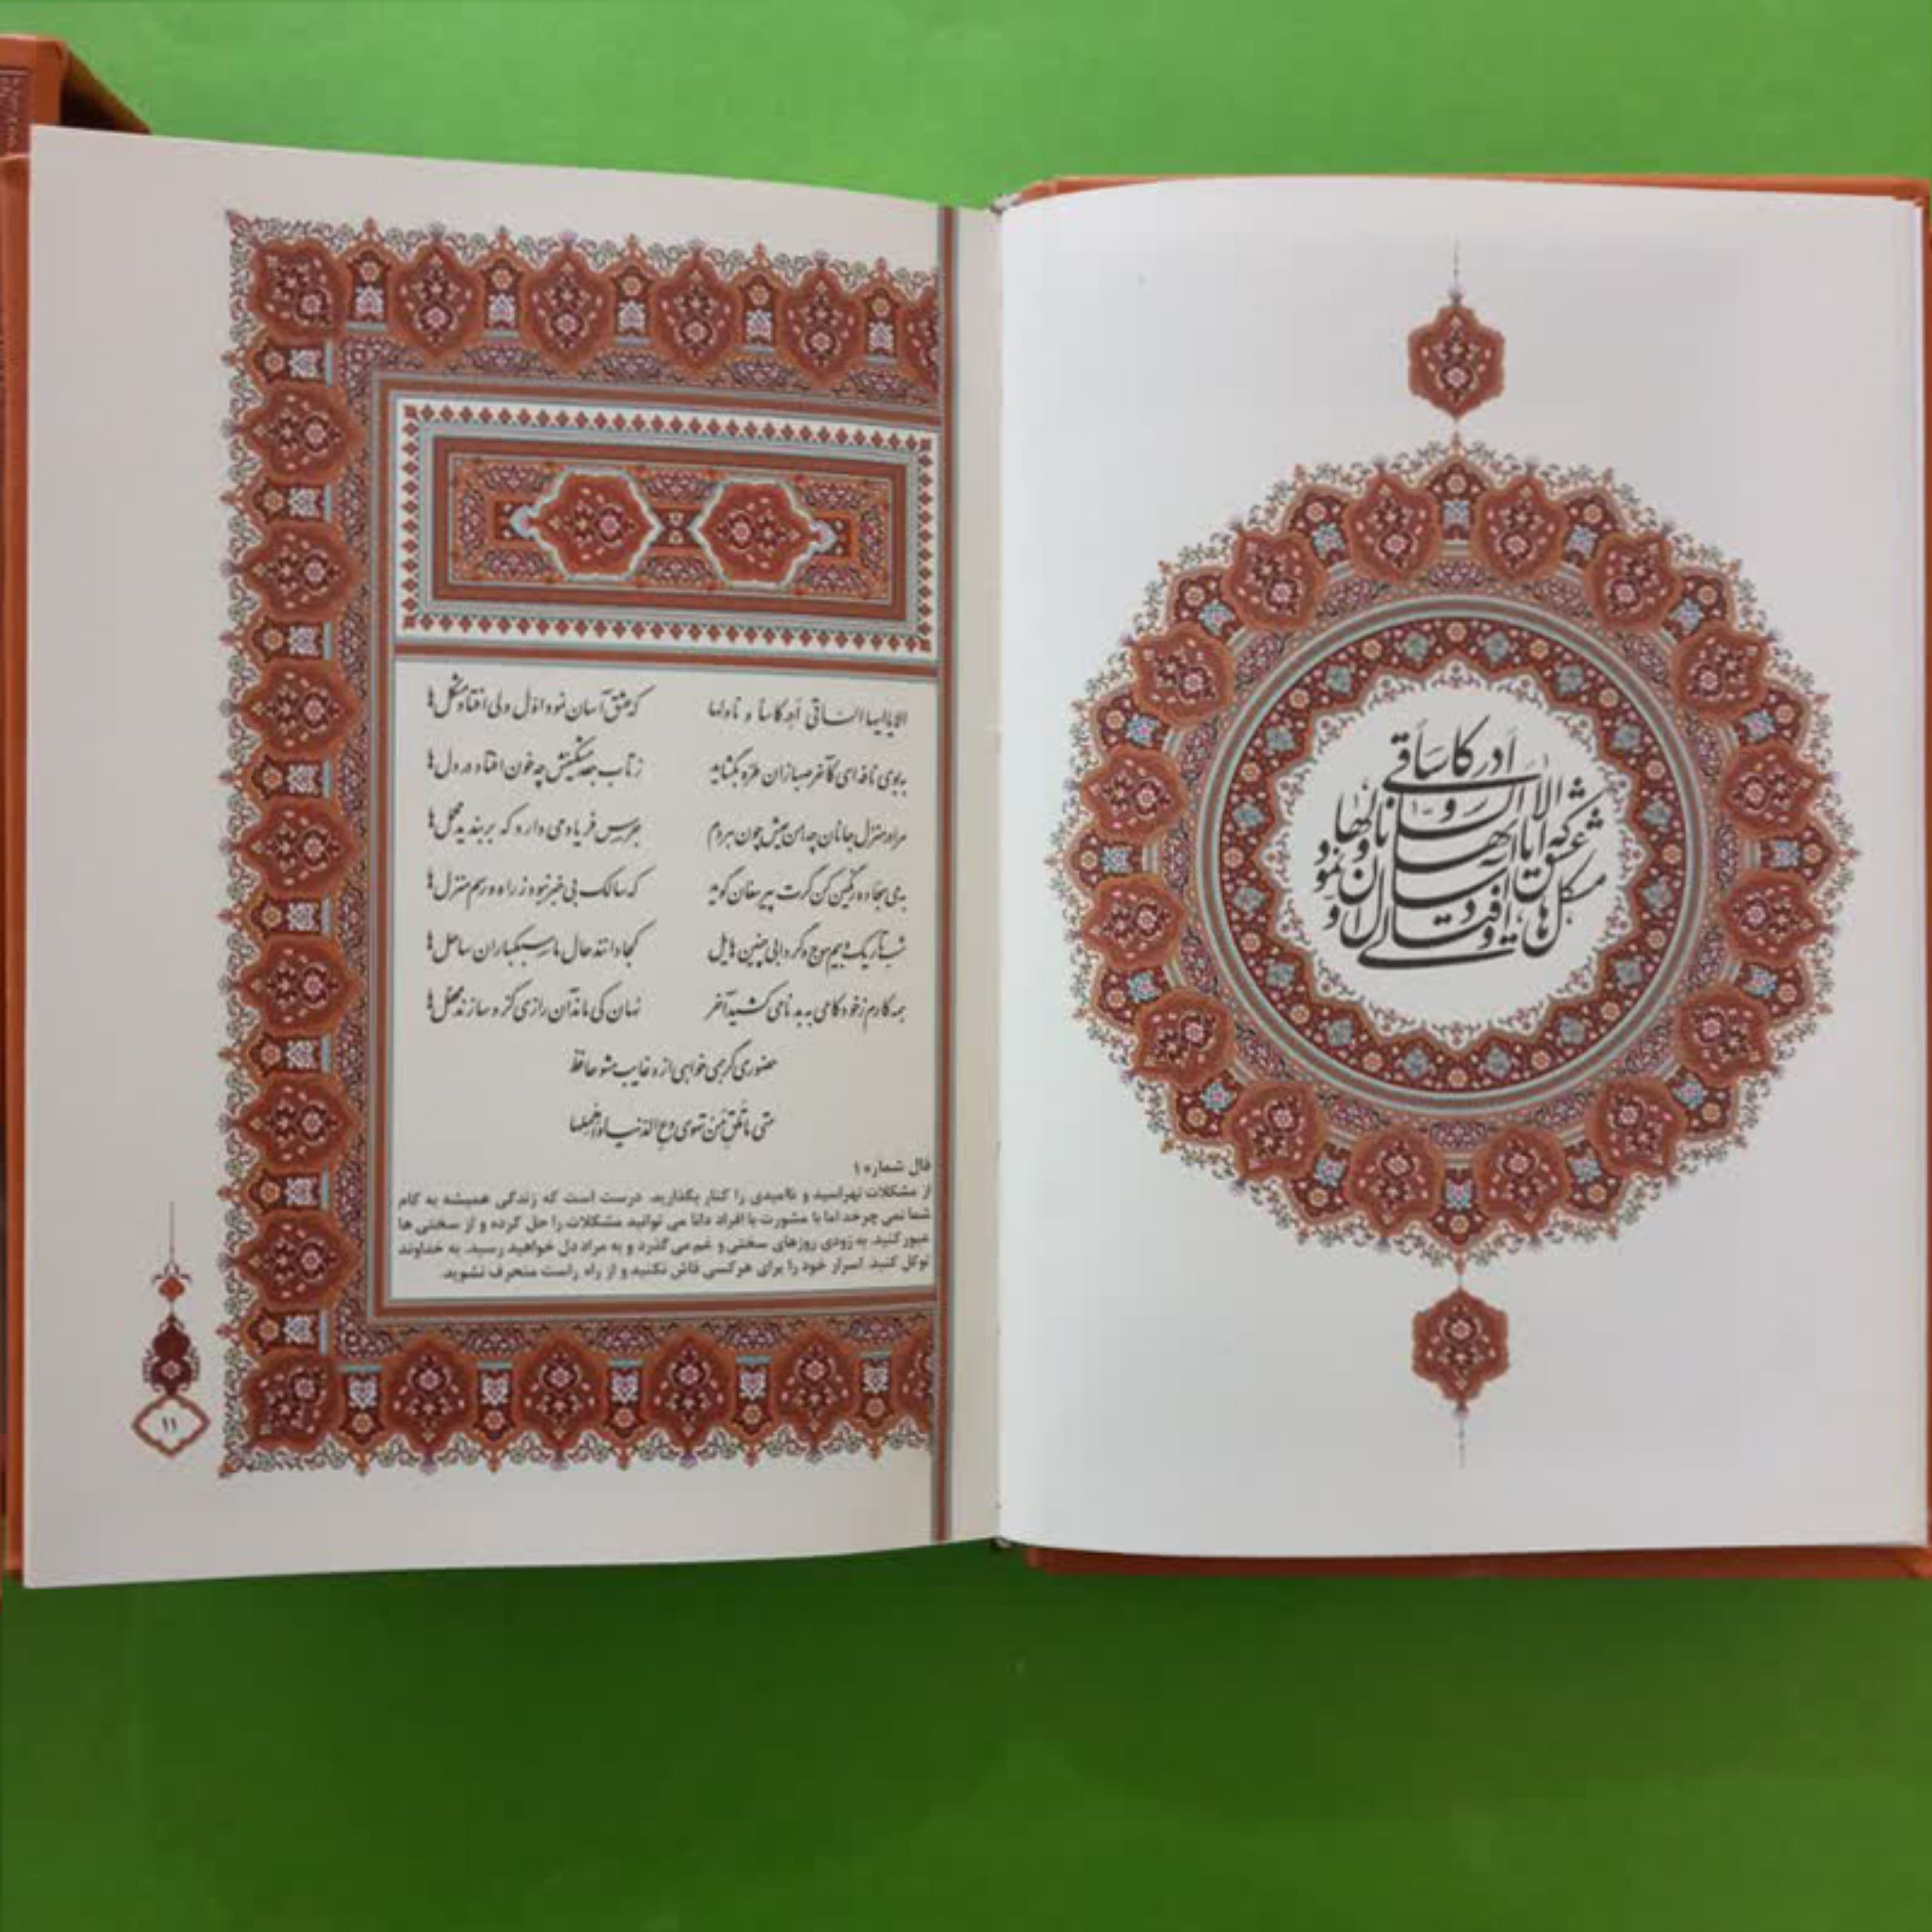 الا یا ایها الساقی ادر کاسا و ناولها که عشق آسان نمود اول ولی افتاد مشکل‌ها
الا یا ایها الساقی أدر کاسا و ناولها که عشق آسان نمود اول ولی افتاد مشکل‌ها
به بوی نافه‌ای کآخر صبا زان طره بگشاید ز تاب جعد مشکینش چه خون افتاد در دل‌ها
مرا در منزل جانان چه امن عیش چون هر دم جرس فریاد می دارد که بربندید محمل‌ها
به می سجاده رنگین کن گرت پیر مغان گوید که سالک بی خبر نبود ز راه و رسم منزل‌ها
شب تاریک و بیم موج و گردابی چنین هایل کجا دانند حال ما سبکباران ساحل‌ها
همه کارم ز خود کامی به بد نامی کشید آخر نهان کی ماند آن رازی کزو سازند محفل‌ها
حضوری گر همی خواهی از و غایب مشو حافظ
متی ما تلق من تهوی دع الدنیا و اهملها
فال شماره ۱
از مشکلات نهراسید و ناامیدی را کنار بگذارید. درست است که زندگی همیشه به کام
شما نمی چرخد اما با مشورت با افراد دانا می توانید مشکلات را حل کرده و از سختی ها
عبور کنید. به زودی روزهای سختی و غم می گذرد و به مراد دل خواهید رسید. به خداوند
توکل کنید. اسرار خود را برای هر کسی فاش نکنید و از راه راست منحرف نشوید.
۱۱